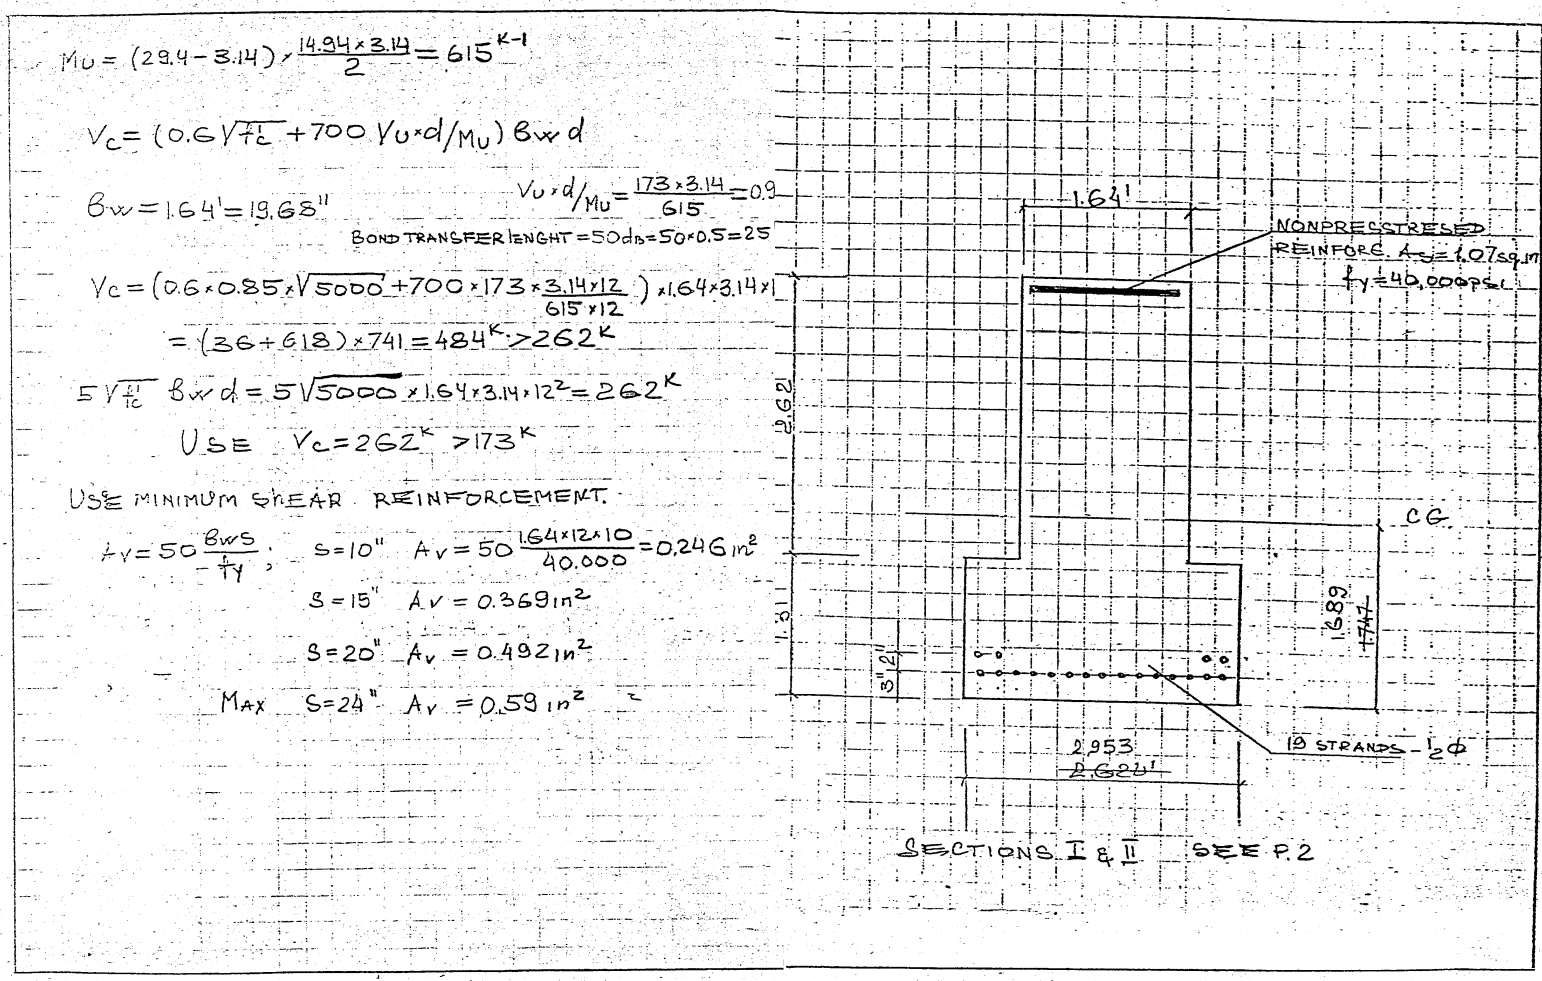 Mu = (29.4-3.14) × 14.94×3.14/2 = 615 K-1
Vc = (0.6√f'c + 700 Vu×d/Mu) Bw d
Bw = 1.64' = 19.68"
Vu×d/Mu = 173×3.14/615 = 0.9
BOND TRANSFER LENGHT = 50dB = 50×0.5 = 25
Vc = (0.6×0.85×√5000 + 700×173×3.14×12/615×12) ×1.64×3.14×1
= (36+618)×741 = 484K > 262K
5√f'c Bw d = 5√5000 ×1.64×3.14×12² = 262K
USE Vc = 262K > 173K
USE MINIMUM SHEAR REINFORCEMENT.
Av = 50 BwS/fy ; S=10" Av = 50 1.64×12×10/40.000 = 0.246 in²
S=15" Av = 0.369 in²
S=20" Av = 0.492 in²
MAX S=24" Av = 0.59 in²
1.64'
NONPRECSTRESED
REINFORC. As=1.07sq.in
fy=40,000psi
2.62
C.G.
1.31
1.689
1.747
3" 2"
19 STRANDS - ½ φ
2.953
2.624'
SECTIONS I & II SEE P.2